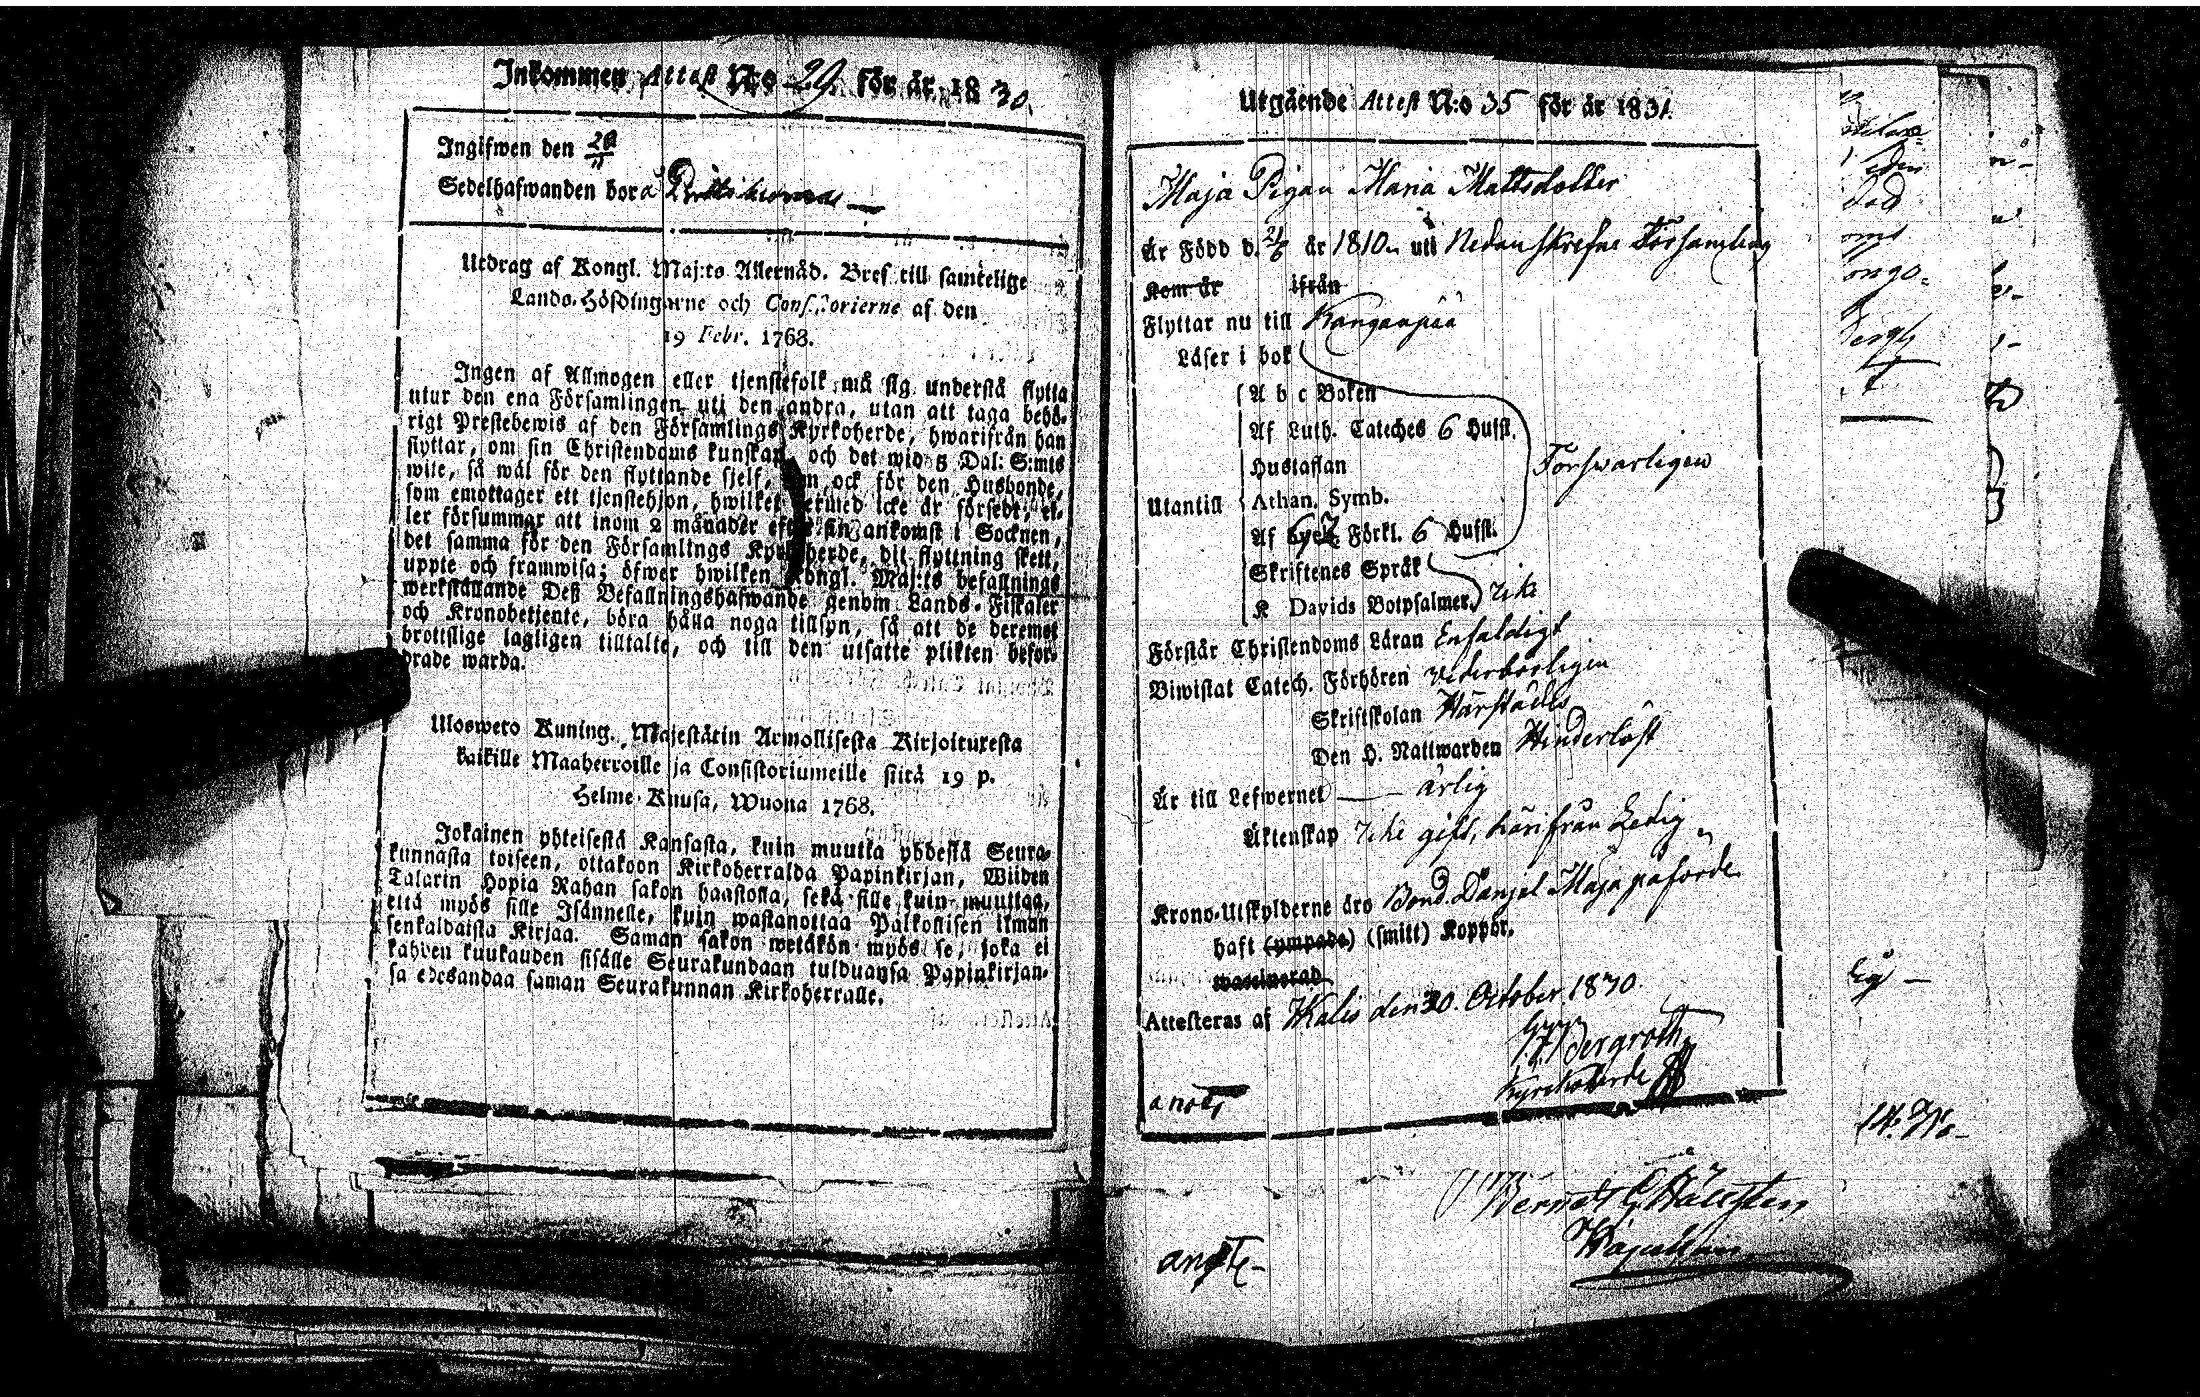 Inkommen Attest N:o 29. för år 1830.
Ingifwen den 20/11
Sedelhafwanden bor å
Utdrag af Kongl. Maj:ts Allernåd. Bref till samtelige
Lands-Höfdingarne och Consistorierne af den
19 Febr. 1768.
Ingen af Allmogen eller tjenstefolk må sig understå flytta
utur den ena Församlingen uti den andra, utan att taga behö-
rigt Prestebewis af den Församlings Kyrkoherde, hwarifrån han
flyttar, om sin Christendoms kunskap, och det wid 5 Dal: S:mts
wite, så wäl för den flyttande sjelf, som ock för den Husbonde,
som emottager ett tjenstehjon, hwilket dermed icke är försedt; el-
ler försummar att inom 2 månader efter sin ankomst i Socknen,
det samma för den Församlings Kyrkoherde, dit flyttning skett,
uppte och framwisa; öfwer hwilken Kongl. Maj:ts befallnings
werkställande Deß Befallningshafwande genom Lands-Fiskaler
och Kronobetjente, böra hålla noga tillsyn, så att de deremot
brottslige lagligen tilltalte, och till den utsatte plikten befor-
drade warda.
Ulosweto Kuning. Majestätin Armollisesta Kirjoituresta
kaikille Maaherroille ja Consistoriumeille siitä 19 p.
Helme-Kuusa, Wuona 1768.
Jokainen yhteisestä Kansasta, kuin muutta yhdestä Seura-
kunnasta toiseen, ottakoon Kirkoherralda Papinkirjan, Wiiden
Talarin Hopia Rahan sakon haastolla, sekä sille kuin muuttaa,
että myös sille Isännelle, kuin wastanottaa Palkollisen ilman
senkaldaista Kirjaa. Saman sakon wetäkön myös se, joka ei
kahden kuukauden sisälle Seurakundaan tulduansa Papinkirjan-
sa edesandaa saman Seurakunnan Kirkoherralle.
Utgående Attest N:o 35 för år 1831.
Maja Pigan Maria Mattsdotter
Är Född d. 21/6 år 1810 uti Nedanskrefne Församling
Kom år ifrån
Flyttar nu till Kangaspää
Läser i bok
A b c Boken
Af Luth. Cateches 6 Hufst.
Hustaflan
Försvarligen
Utantill Athan. Symb.
Af Förkl. 6 Hufst.
Skriftenes Språk
K Davids Botpsalmer. Icke
Förstår Christendoms Läran Enfaldigt
Biwistat Catech. Förhören vederbörligen
Skriftskolan Härstädes
Den H. Nattwarden Hinderlöst
Är till Lefwernet ärlig
Äktenskap Icke gift, härifrån Ledig
Krono-Utskylderne äro Bond. Danjel Maja påförde
haft (ympade) (smitt) Koppor.
waccinerad
Attesteras af Ikalis den 30. October 1830.
Bergroth
Kyrkoherde
anot:
Kapellan